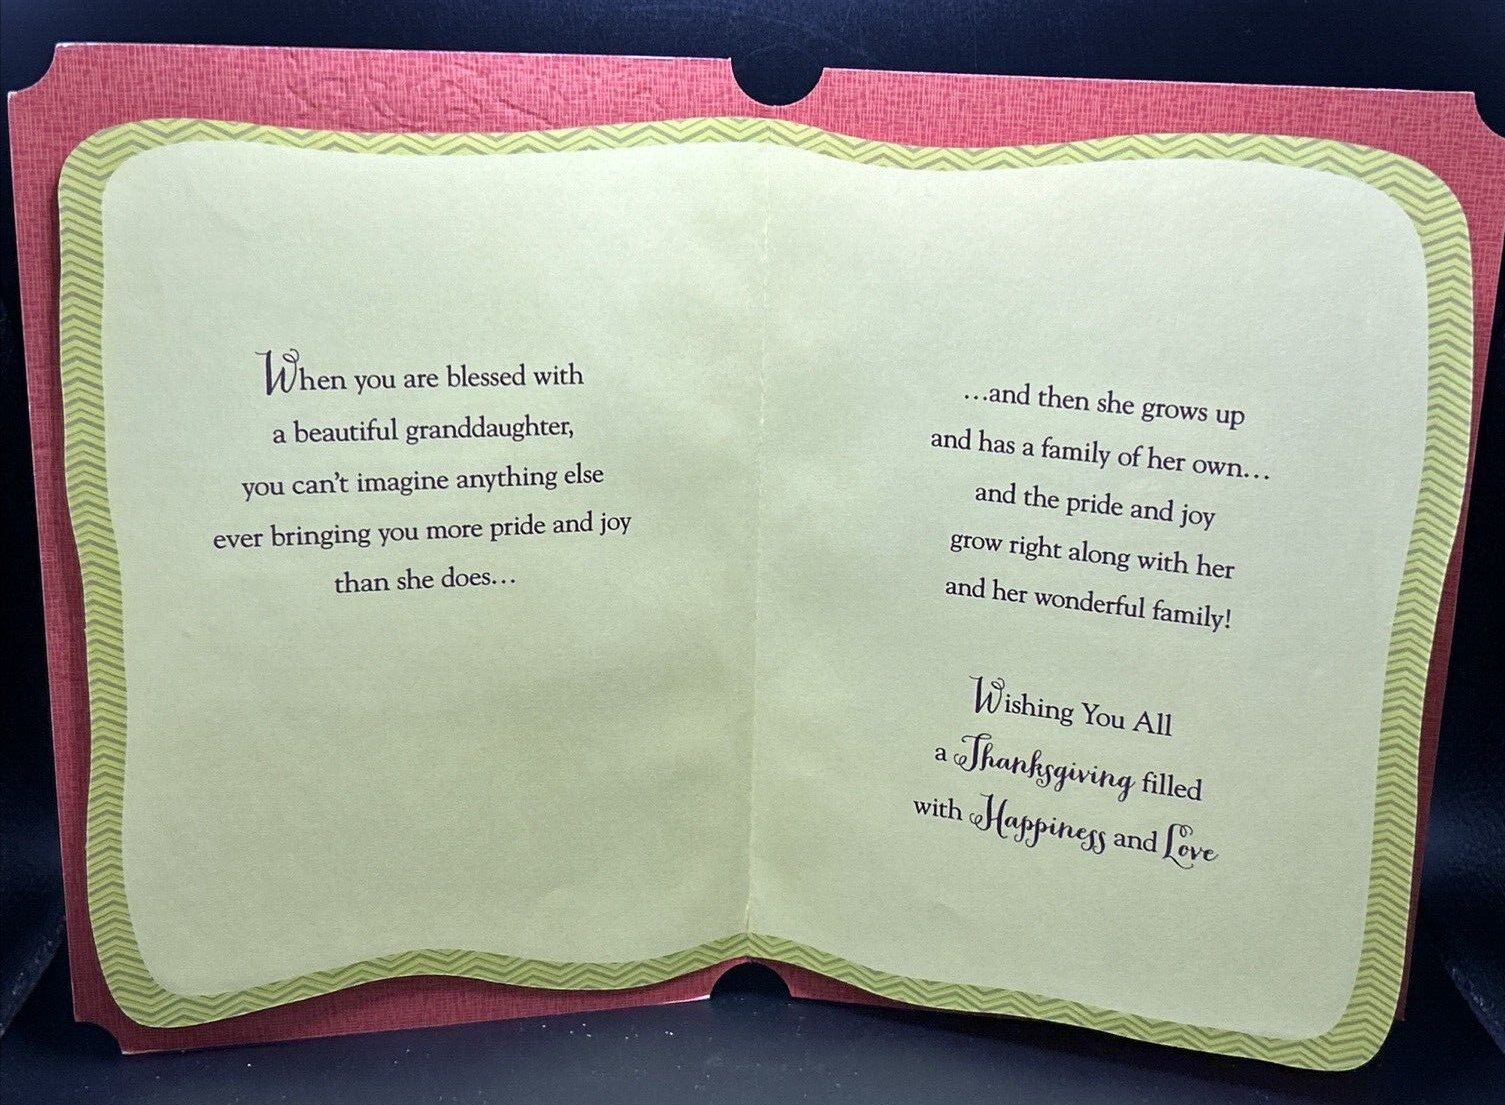 When you are blessed with
a beautiful granddaughter,
you can't imagine anything else
ever bringing you more pride and joy
than she does...
...and then she grows up
and has a family of her own...
and the pride and joy
grow right along with her
and her wonderful family!
Wishing You All
a Thanksgiving filled
with Happiness and Love